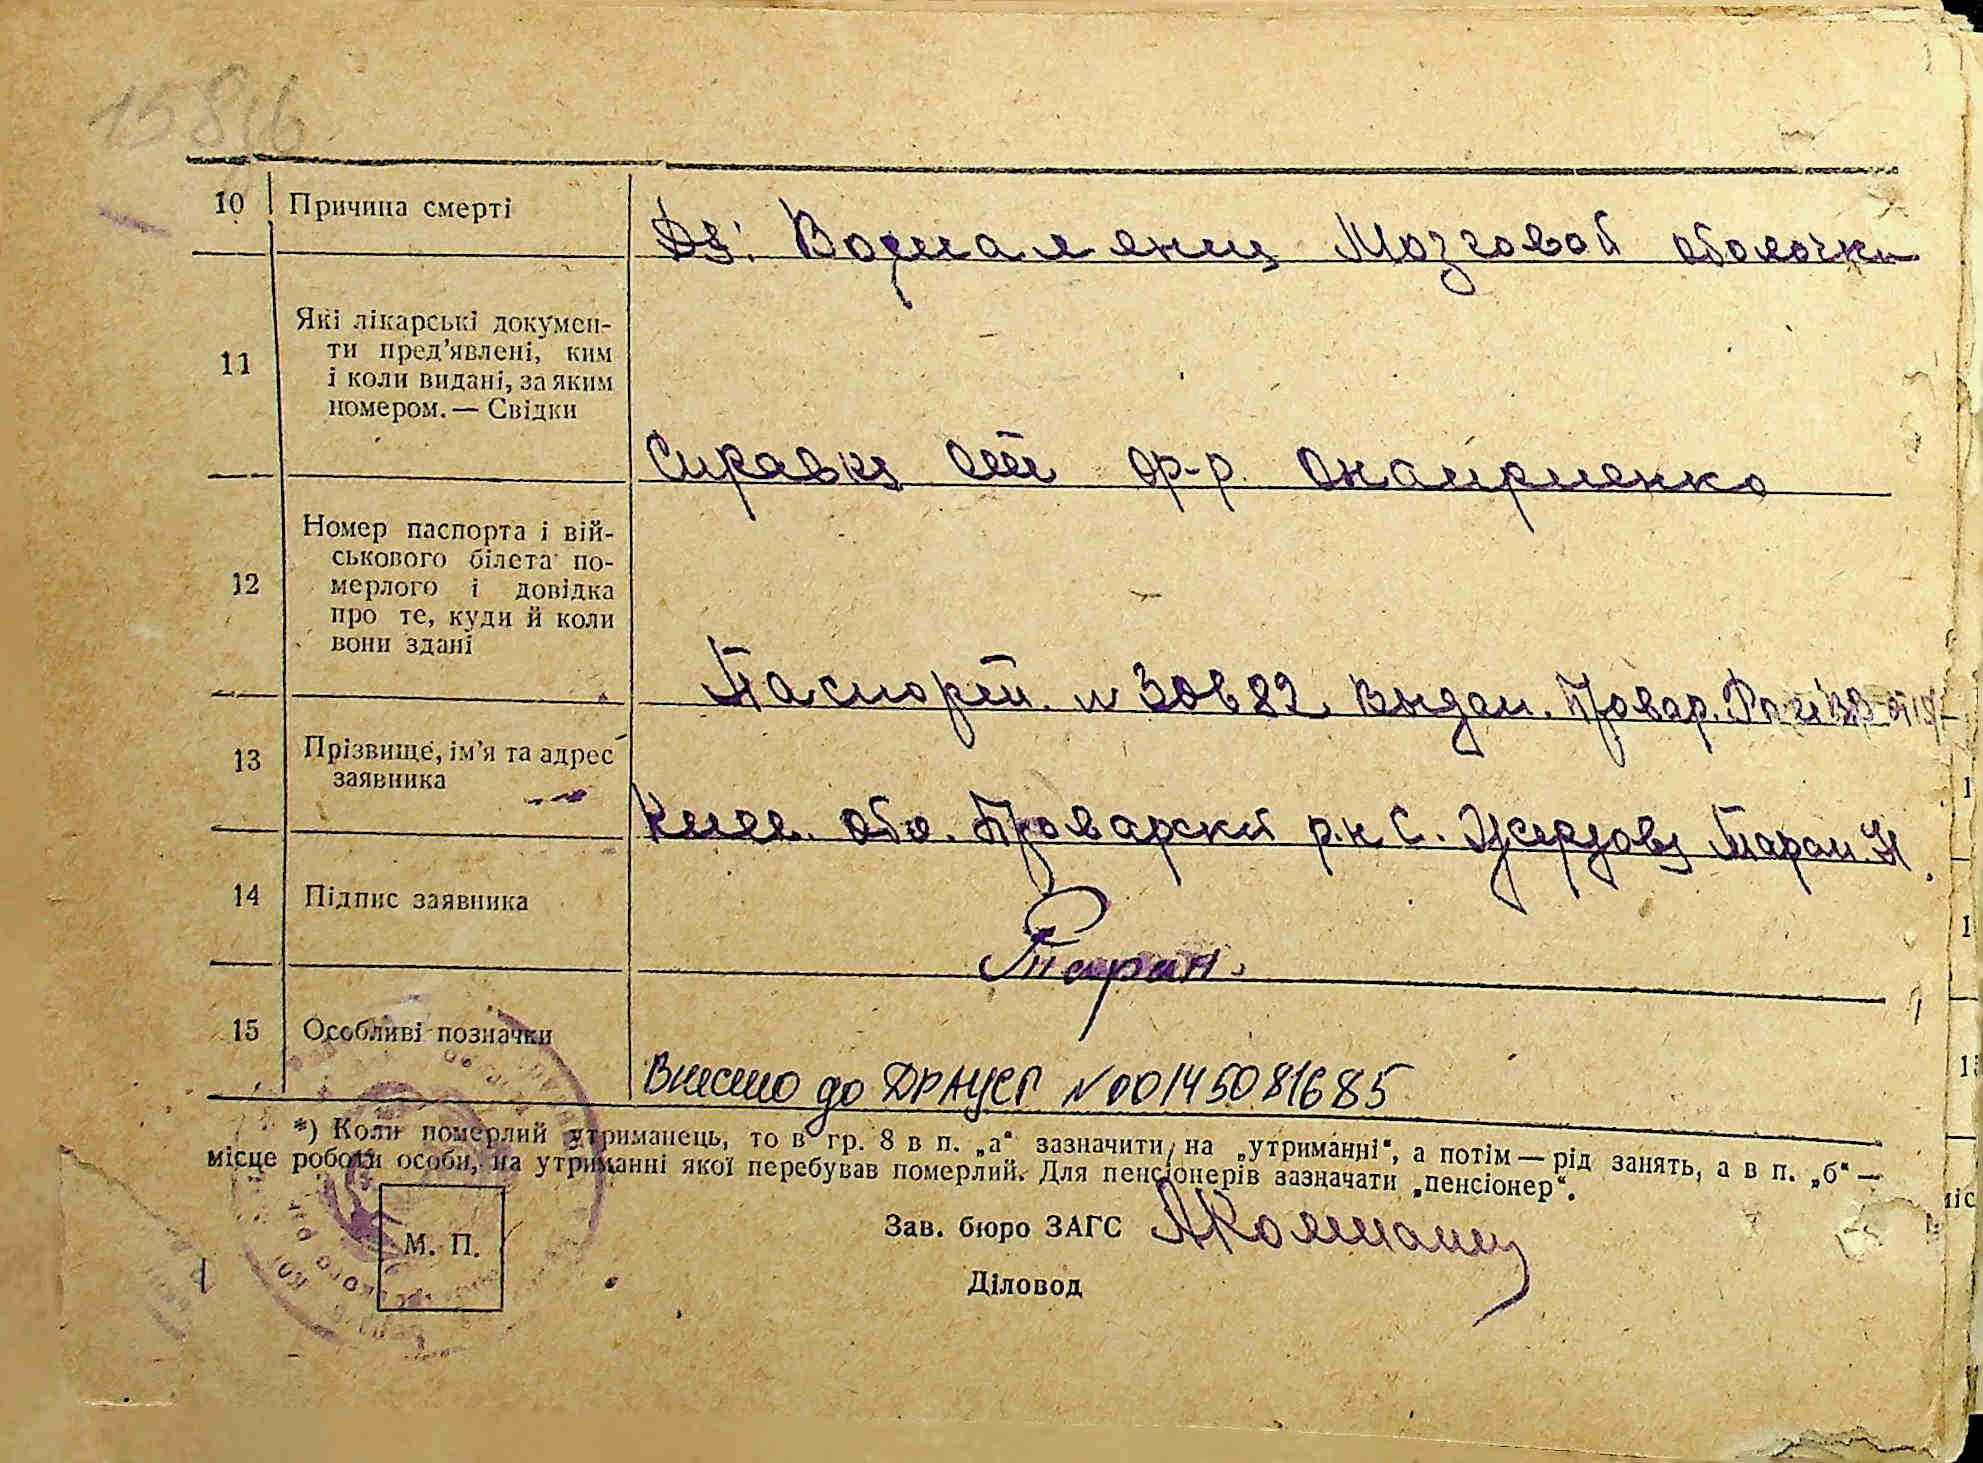 158/6
10 Причина смерті
Ds: Воспаление Мозговой оболочки
11 Які лікарські докумен-
ти пред'явлені, ким
і коли видані, за яким
номером. — Свідки
Справка от
12 Номер паспорта і вій-
ськового білета по-
мерлого і довідка
про те, куди й коли
вони здані
Паспорт. № 30682. Выдан.
13 Прізвище, ім'я та адрес
заявника
Киев. обл. р.н С. Таран Н
14 Підпис заявника
Таран.
15 Особливі позначки
Внесено до ДРАЦСГ №00145081685
*) Коли померлий утриманець, то в гр. 8 в п. „а“ зазначити „на „утриманні“, а потім — рід занять, а в п. „б“ —
місце роботи особи, на утриманні якої перебував померлий. Для пенсіонерів зазначати „пенсіонер“.
М. П.
Зав. бюро ЗАГС
Діловод